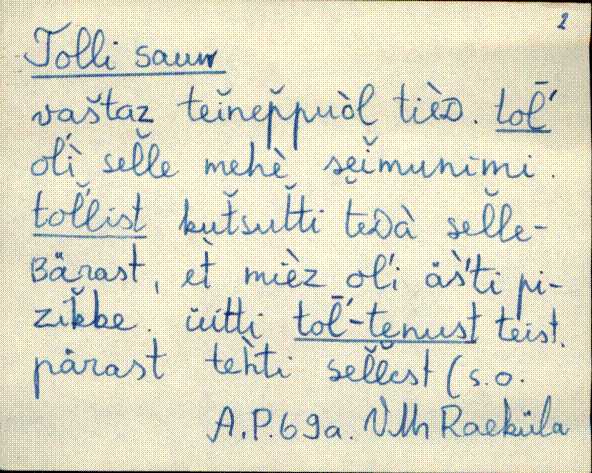 2
Tolli saun
vaštaz teĭnep̆puòl tièD. tol̄'
ol'ì sel̆le mehè sẹĭmunimi.
tol̆list kut̆sut̆ti teDà sel̆le-
Bärast, èt mièz ol'i äš'ti pi-
zik̆be. üitti tol̄'-tẹnust teist.
pärast teh̀ti sel̆lest (s.o.
A.P. 69a. VMh Raeküla